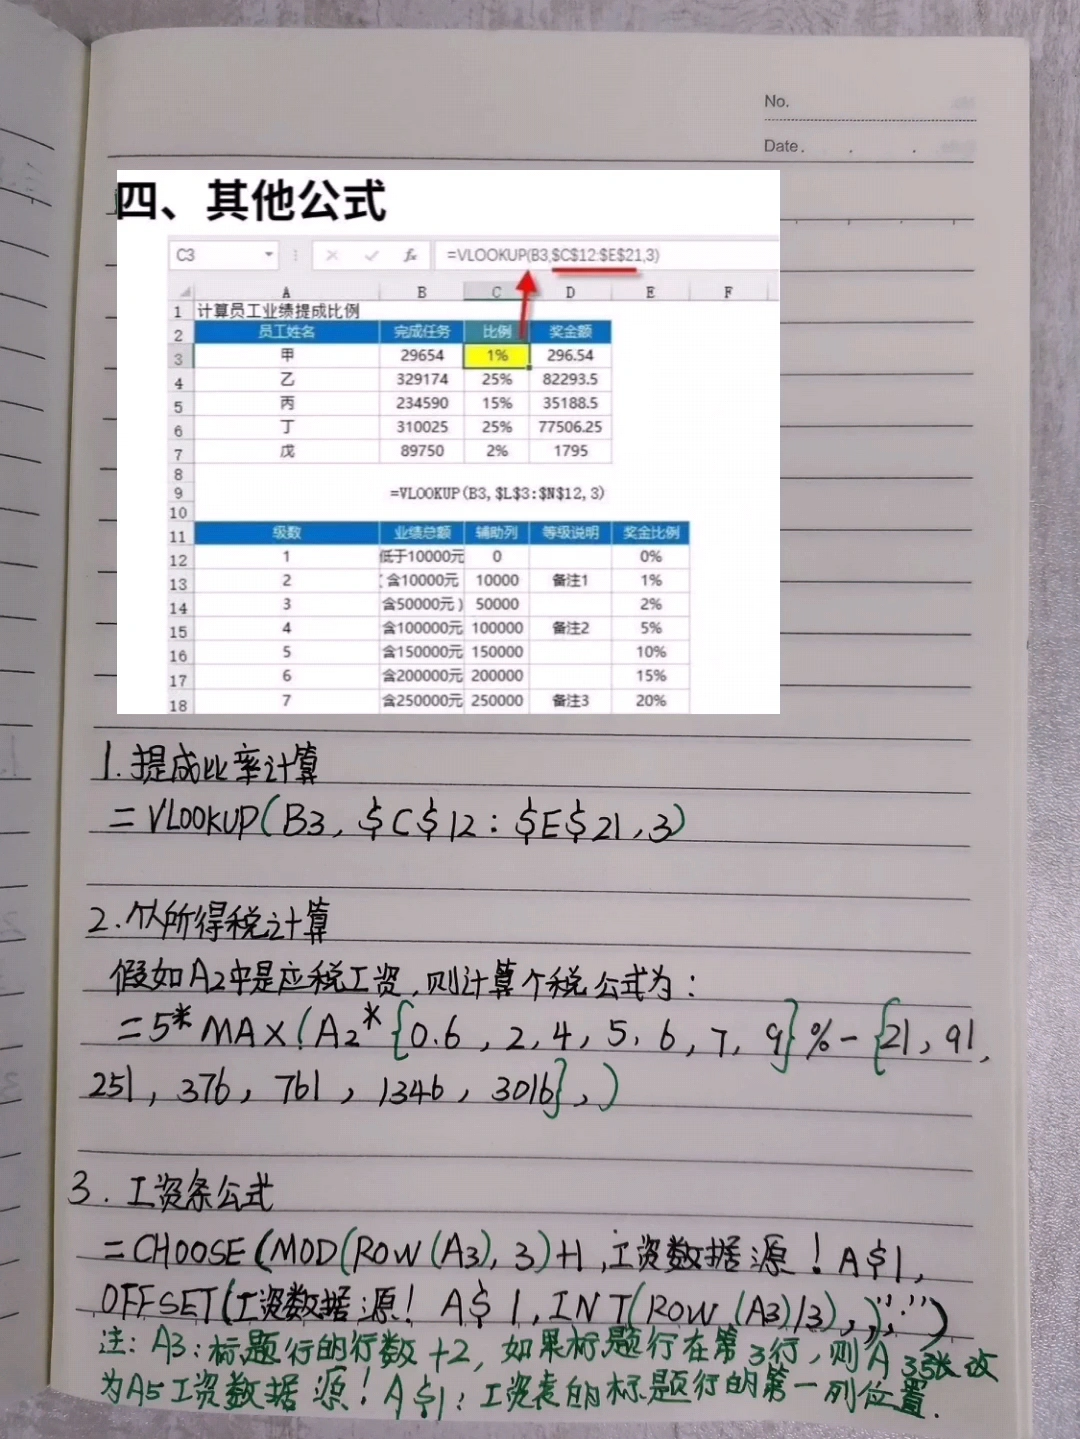 No.
Date.
四、其他公式
C3 fx =VLOOKUP(B3,$C$12:$E$21,3)
A B C D E F
1 计算员工业绩提成比例
2 员工姓名 完成任务 比例 奖金额
3 甲 29654 1% 296.54
4 乙 329174 25% 82293.5
5 丙 234590 15% 35188.5
6 丁 310025 25% 77506.25
7 戊 89750 2% 1795
8
9 =VLOOKUP(B3,$L$3:$N$12,3)
10
11 级数 业绩总额 辅助列 等级说明 奖金比例
12 1 低于10000元 0 0%
13 2 含10000元 10000 备注1 1%
14 3 含50000元) 50000 2%
15 4 含100000元 100000 备注2 5%
16 5 含150000元 150000 10%
17 6 含200000元 200000 15%
18 7 含250000元 250000 备注3 20%
1.提成比率计算
=VLOOKUP(B3,$C$12:$E$21,3)
2.个人所得税计算
假如A2中是应税工资,则计算个税公式为:
=5*MAX(A2*{0.6,2,4,5,6,7,9}%-{21,91,
251,376,761,1346,3016},)
3.工资条公式
=CHOOSE(MOD(ROW(A3),3)+1,工资数据源!A$1,
OFFSET(工资数据源!A$1,INT(ROW(A3)/3),,),"")
注:A3:标题行的行数+2,如果标题行在第3行,则A3改
为A5工资数据源!A$1:工资表的标题行的第一列位置.